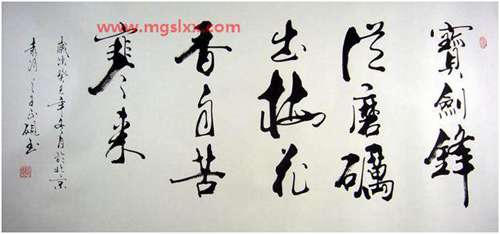 www.mgslxx.com
寶劍鋒
從磨礪
出梅花
香自苦
寒来
歲次癸巳年冬月於北京